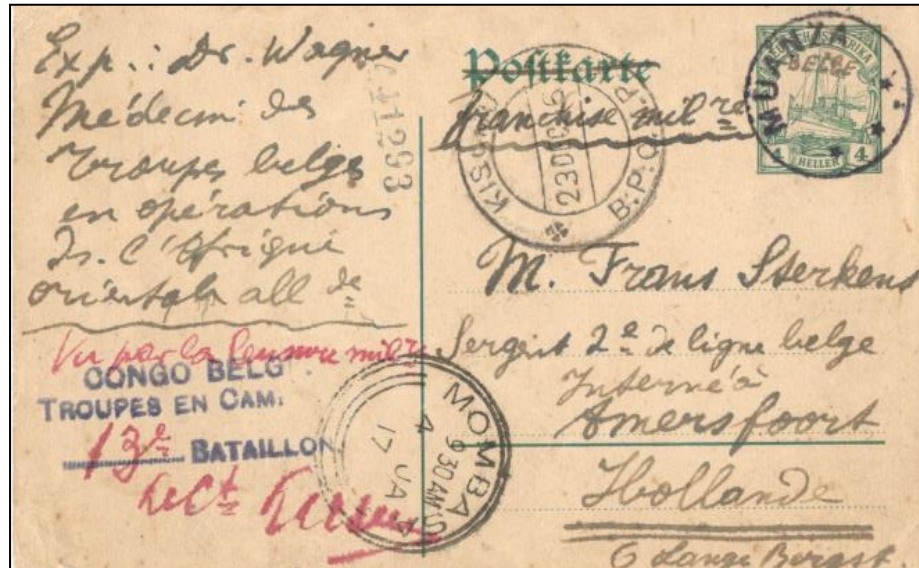 Exp.: Dr. Wagner
Médecin des
troupes belges
en opérations
ds. l'Afrique
orientale all de
Vu par la Censure milre
CONGO BELG
TROUPES EN CAM.
13e BATAILLON
Lect
C11293
Postkarte
franchise milre
KISU 23 DEC 16 B.P.C.
MUANZA
DEUTSCH-OSTAFRIKA
BELGE
4 HELLER 4
M. Frans Sterkens
Sergent 2e de ligne belge
Interné à
Amersfoort
Hollande
6 Lange Bergst.
MOMBASA
9 30 AM
4 JA
17